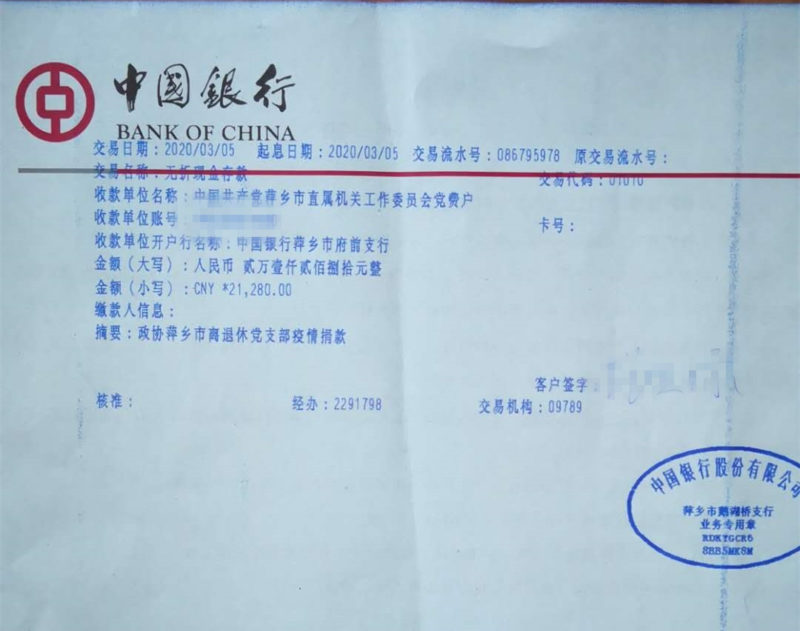 中国銀行
BANK OF CHINA
交易日期：2020/03/05 起息日期：2020/03/05 交易流水号：086795978 原交易流水号：
交易名称：无折现金存款 交易代码：01010
收款单位名称：中国共产党萍乡市直属机关工作委员会党费户
收款单位账号 卡号：
收款单位开户行名称：中国银行萍乡市府前支行
金额（大写）：人民币 贰万壹仟贰佰捌拾元整
金额（小写）：CNY *21,280.00
缴款人信息：
摘要：政协萍乡市离退休党支部疫情捐款
客户签字
核准： 经办：2291798 交易机构：09789
中国银行股份有限公司
萍乡市鹅湖桥支行
业务专用章
RDKYGCR6
8BB5MK8M